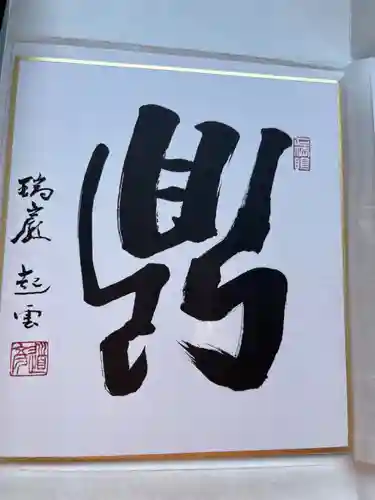 鼎
瑞巌 起雲